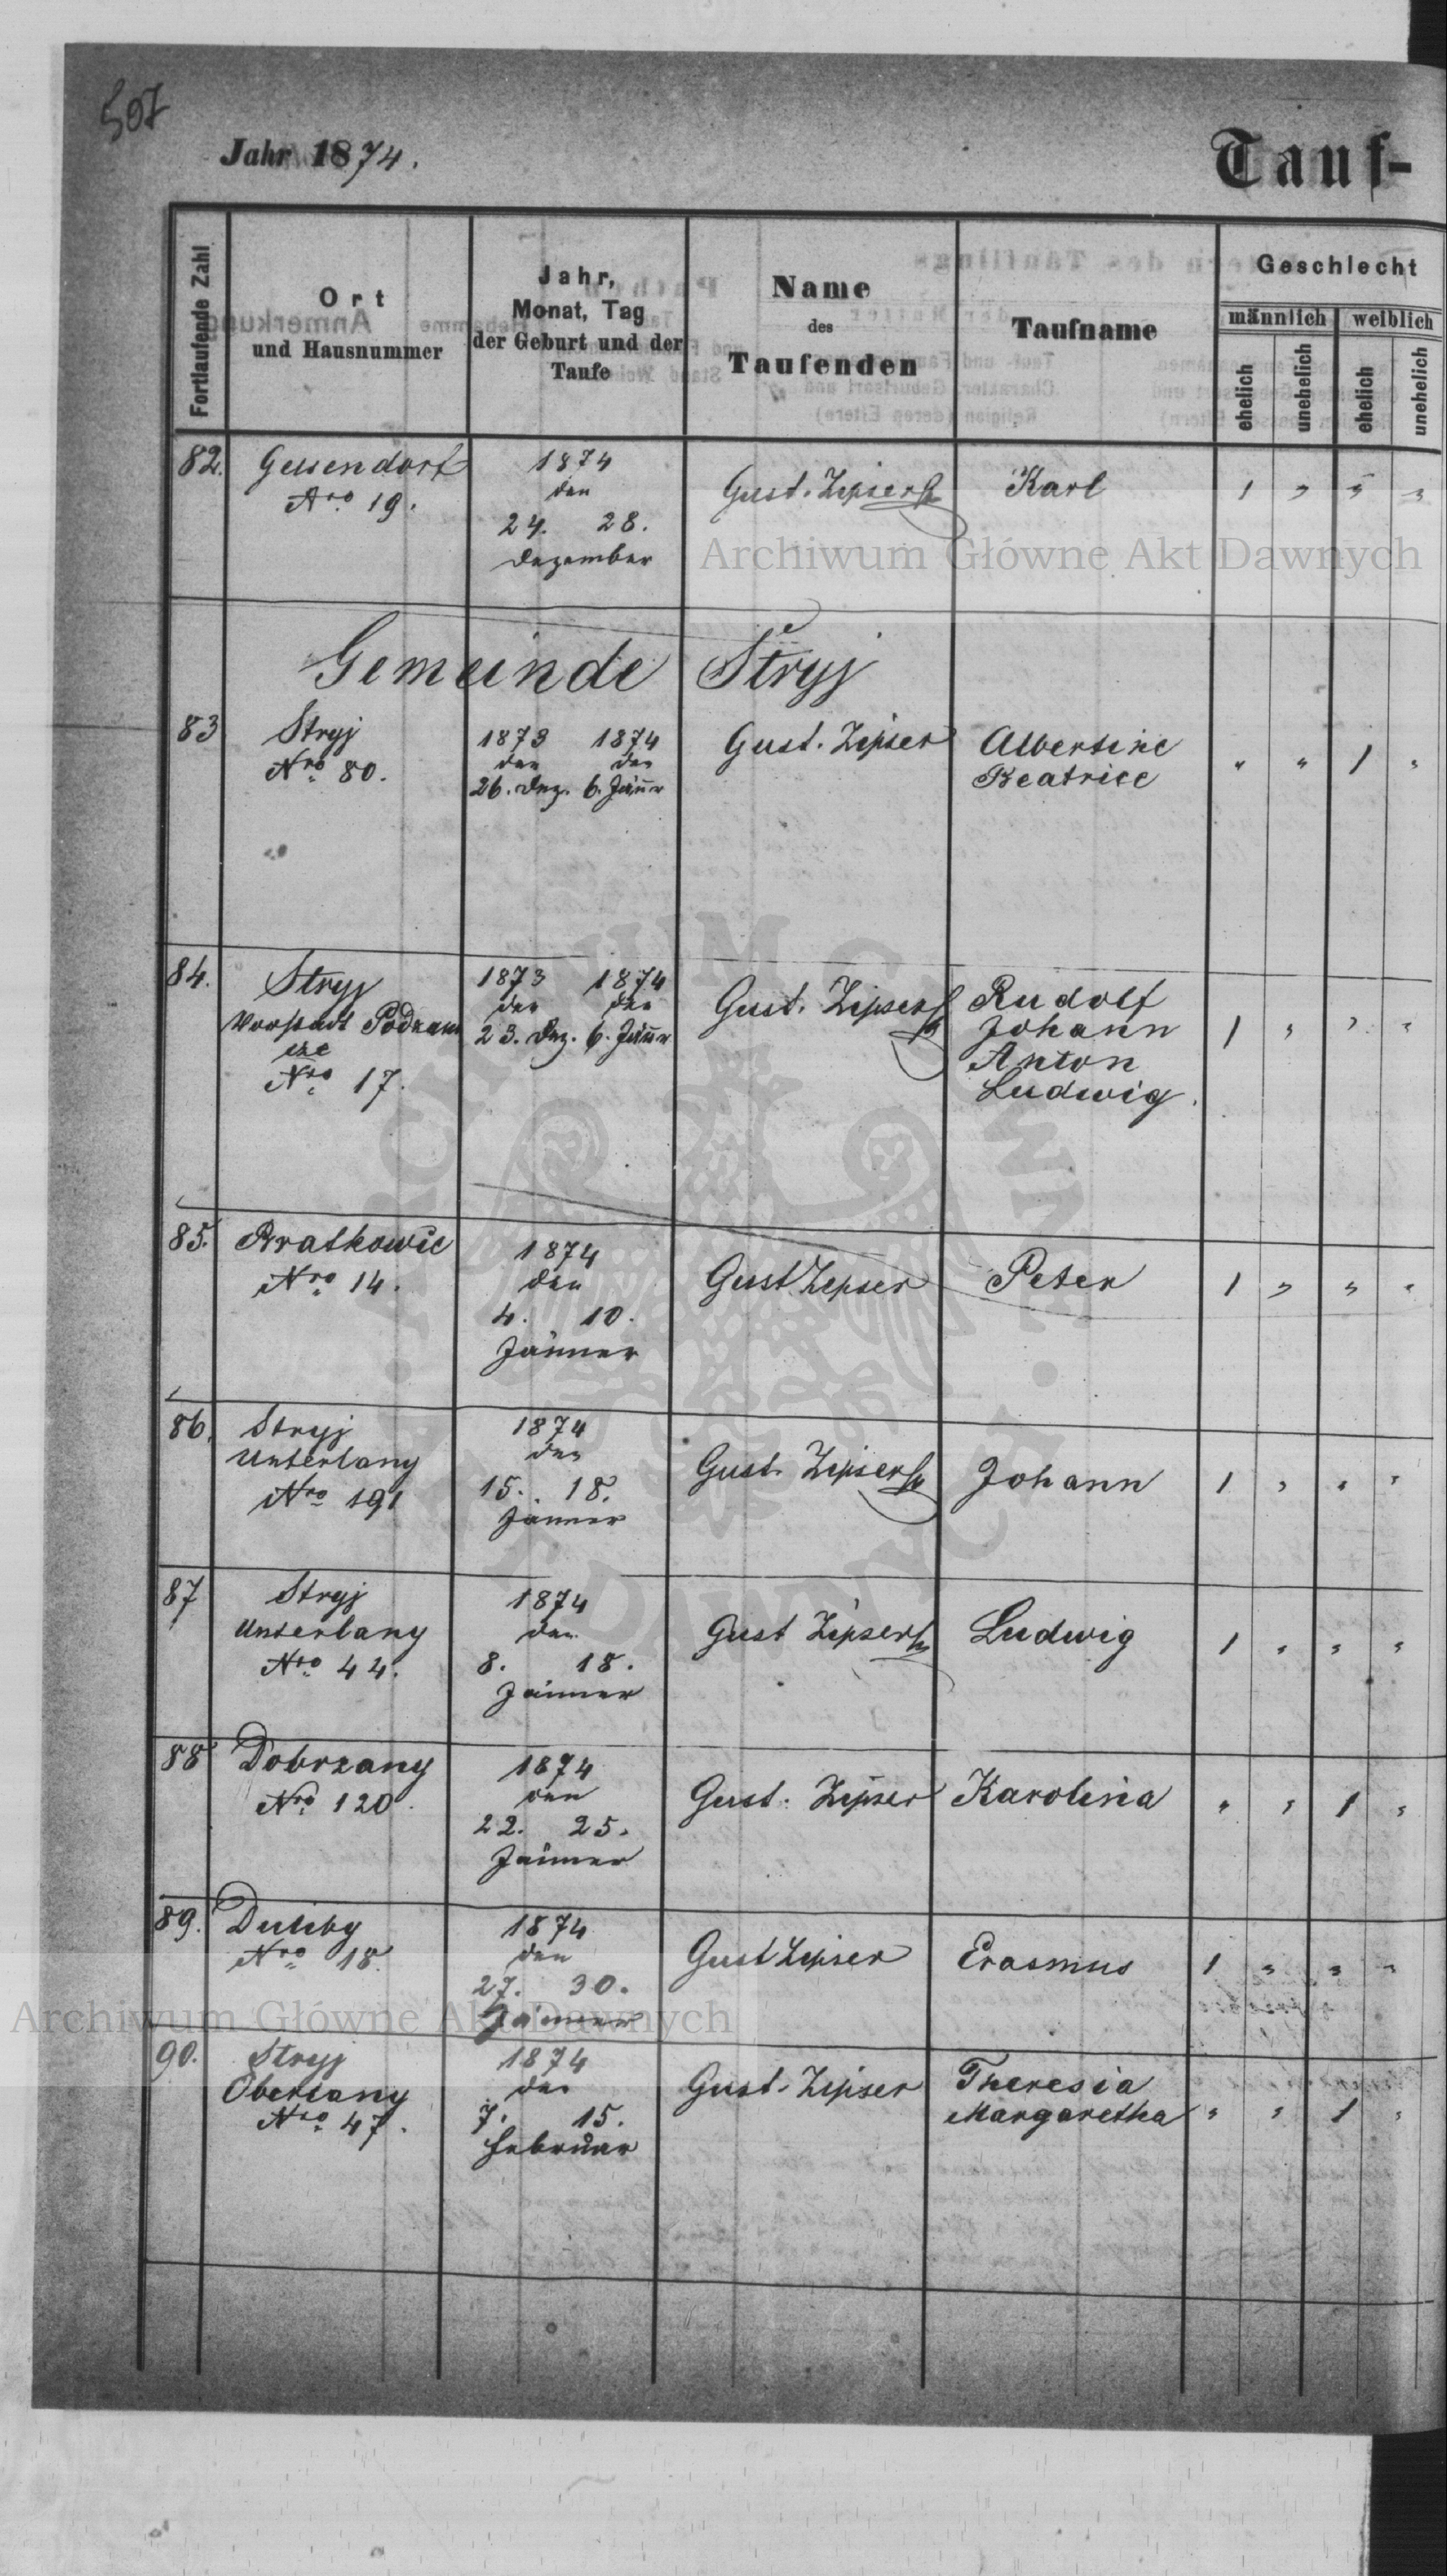 507
Jahr 1874.
Tauf-
Fortlaufende Zahl
Ort
und Hausnummer
Jahr,
Monat, Tag
der Geburt und der
Taufe
Name
des
Taufenden
Taufname
Geschlecht
männlich
weiblich
ehelich
unehelich
ehelich
unehelich
82. Gelsendorf
Nro 19.
1874
den
24. 28.
Dezember
Gust. Zipser
Karl
1 " " "
Archiwum Główne Akt Dawnych
Gemeinde Stryj
83 Stryj
Nro 80.
1873 1874
den den
26. Dez. 6. Jänn
Gust. Zipser
Albertine
Beatrice
" " 1 "
84. Stryj
Vorstadt Podzam
cze
Nro 17.
1873 1874
den den
23. Dez. 6. Jänn
Gust. Zipser
Rudolf
Johann
Anton
Ludwig.
1 " " "
85. Bratkowic
Nro 14.
1874
den
4. 10.
Jänner
Gust Zipser
Peter
1 " " "
86. Stryj
Unterlany
Nro 191
1874
den
15. 18.
Jänner
Gust. Zipser
Johann
1 " " "
87 Stryj
Unterlany
Nro 44.
1874
den
8. 18.
Jänner
Gust Zipser
Ludwig
1 " " "
88 Dobrzany
Nro 120.
1874
den
22. 25.
Jänner
Gust. Zipser
Karolina
" " 1 "
89. Duliby
Nro 18.
1874
den
27. 30.
Jänner
Gust Zipser
Erasmus
1 " " "
Archiwum Główne Akt Dawnych
90. Stryj
Oberlany
Nro 47.
1874
den
7. 15.
Februar
Gust. Zipser
Theresia
Margaretha
" " 1 "